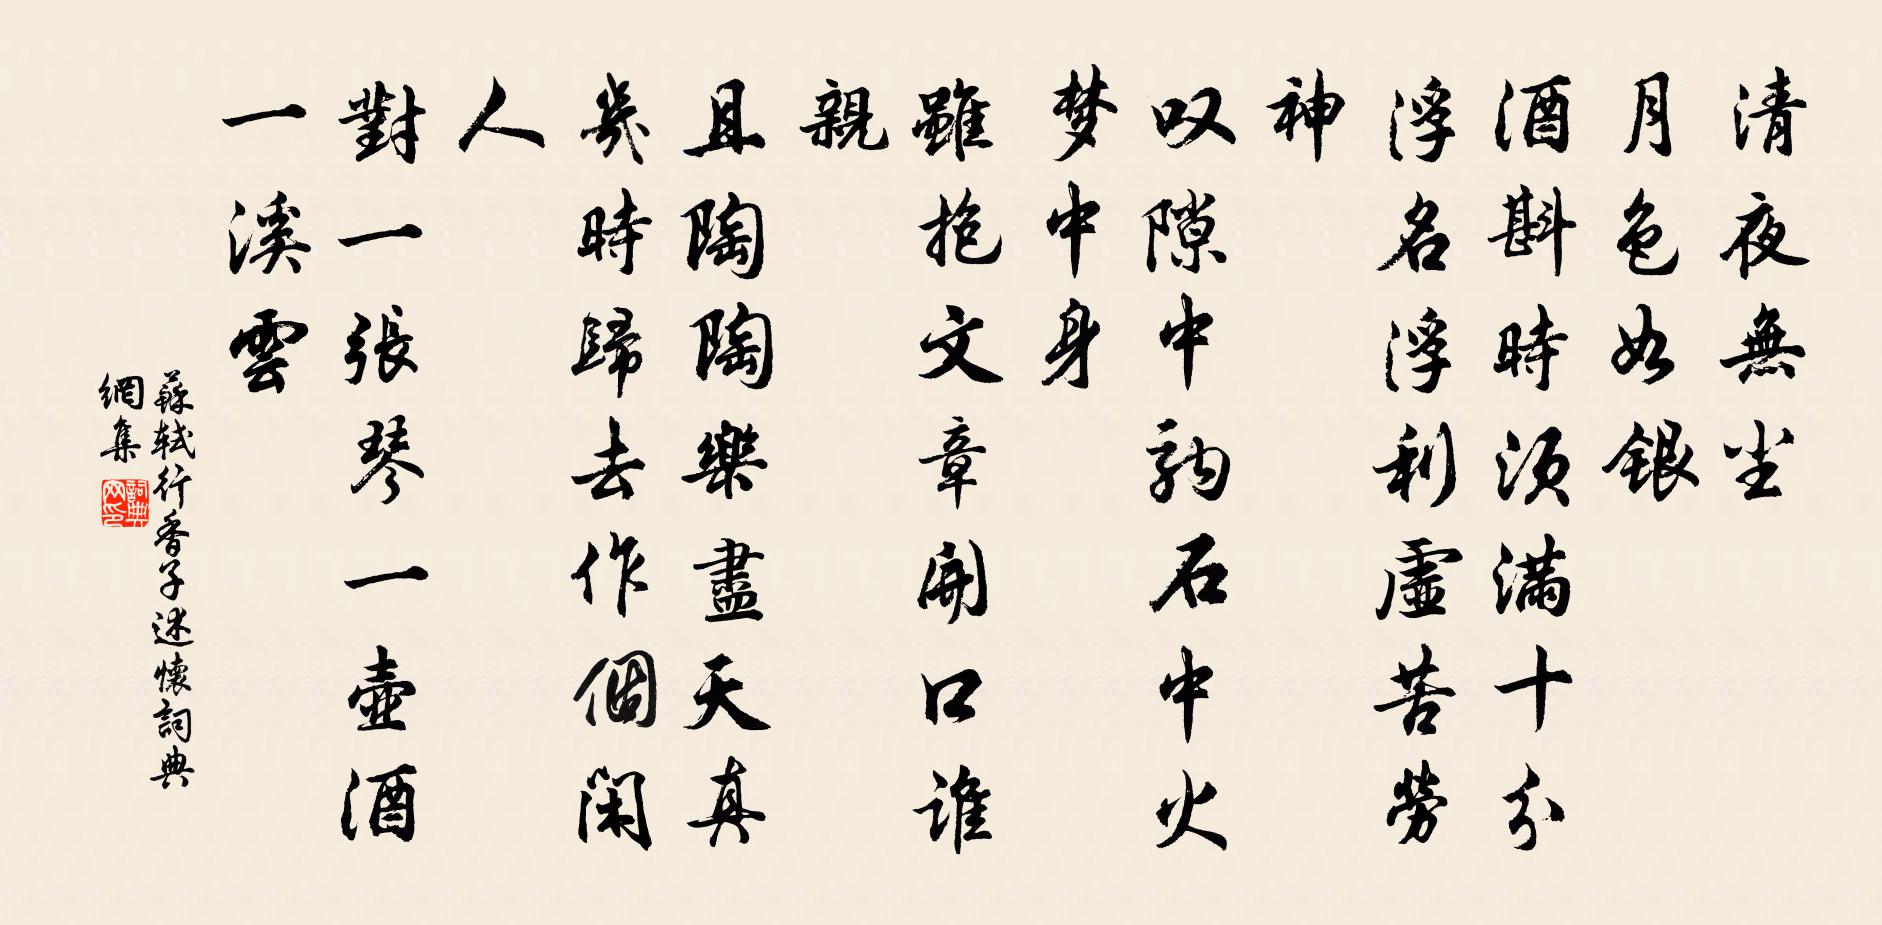 清夜無尘
月色如銀
酒斟時須满十分
浮名浮利虛苦勞
神
叹隙中駒石中火
梦中身
雖抱文章開口谁
親
且陶陶樂盡天真
幾時歸去作個閑
人
對一張琴一壺酒
一溪雲
蘇軾行香子述懷詞典
網集
詞典
网印